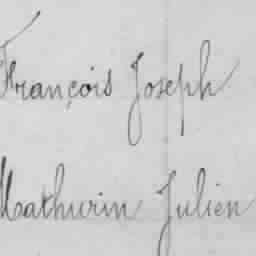 François Joseph
Mathurin Julien